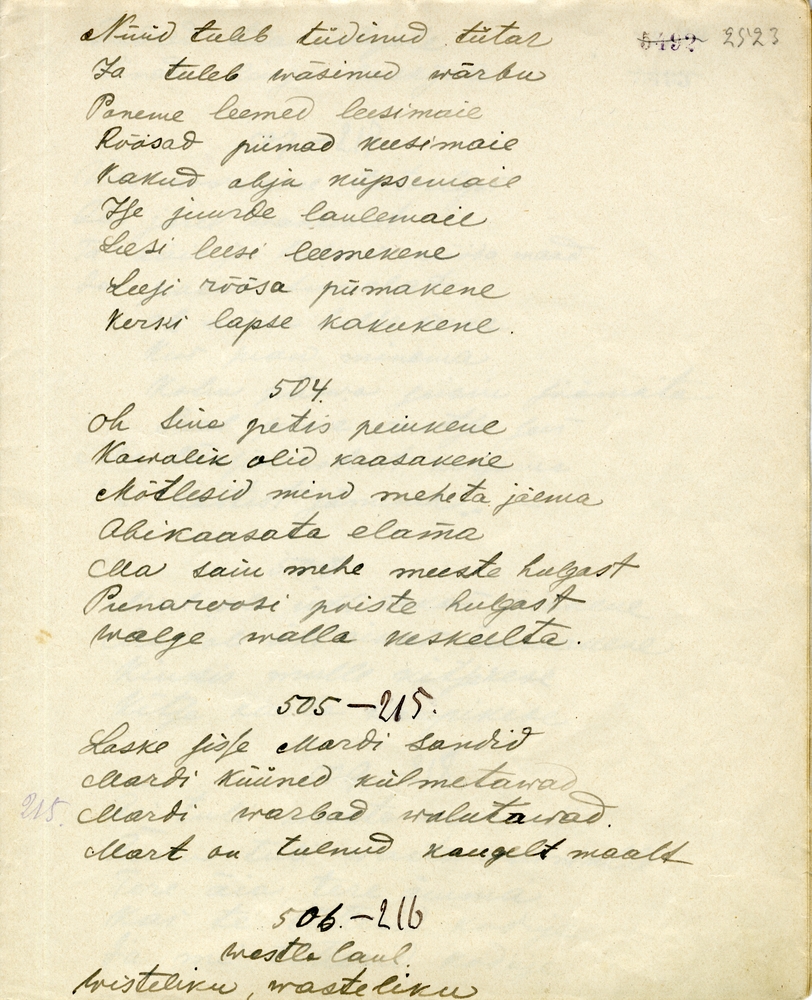 5492 2523
Nüüd tuleb tüdinud tütar
Ja tuleb wäsinud wärbu
Paneme leemed leesimaie
Röösad piimad keesimaie
Kakud ahju küpsemaie
Ise juurde laulemaie
Leesi leesi leemekene
Leesi röösa piimakene
Kerki lapse kakukene.
504.
Oh sina petis peiukene
Kawalik olid kaasakene
Mõtlesid mind meheta jäema
Abikaasata elama
Ma sain mehe meeste hulgast
Punaroosi poiste hulgast
Walge walla keskeelta.
505-215.
Laske sisse Mardi sandid
Mardi küüned külmetawad
215. Mardi warbad walutawad.
Mart on tulnud kaugelt maalt
506.-216
westla laul.
Wisteliku, wasteliku